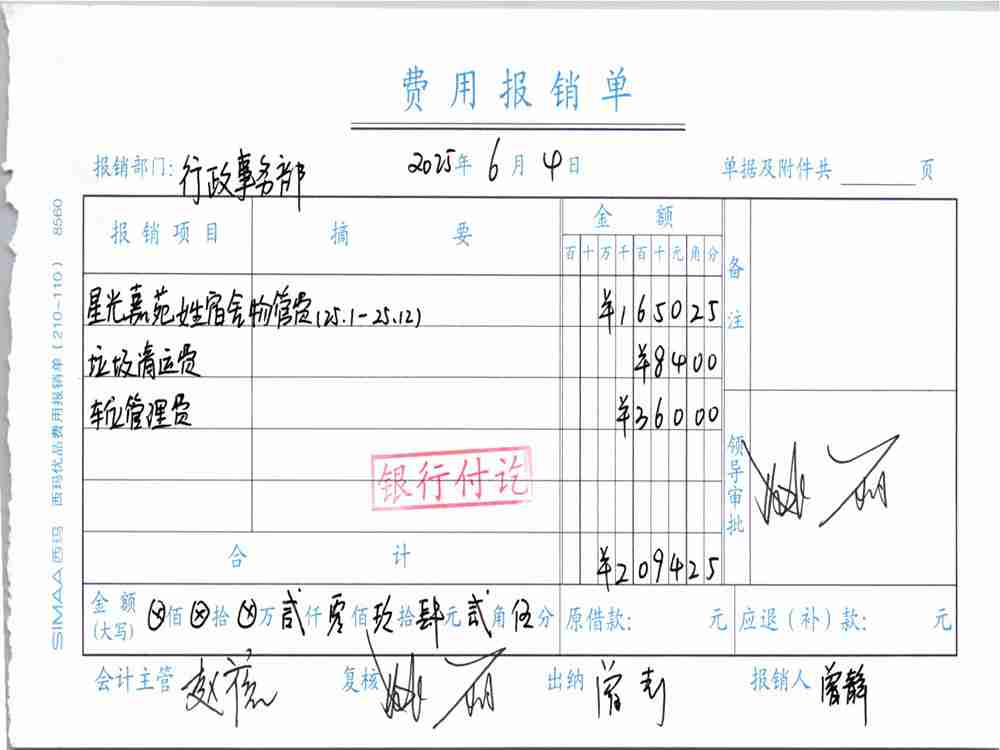 费用报销单
报销部门: 行政事务部 2025年 6月 4日 单据及附件共 页
报销项目 摘要 金额 备注
百十万千百十元角分
星光嘉苑姓宿舍物管费(25.1-25.12) ¥165025
垃圾清运费 ¥8400
车位管理费 ¥36000
银行付讫
领导审批
合计 ¥209425
金额(大写) ⊗佰⊗拾⊗万贰仟零佰玖拾肆元贰角伍分 原借款: 元 应退(补)款: 元
会计主管 复核 出纳 报销人 曾静
SIMAA西玛 西玛优品费用报销单(210-110) 8560